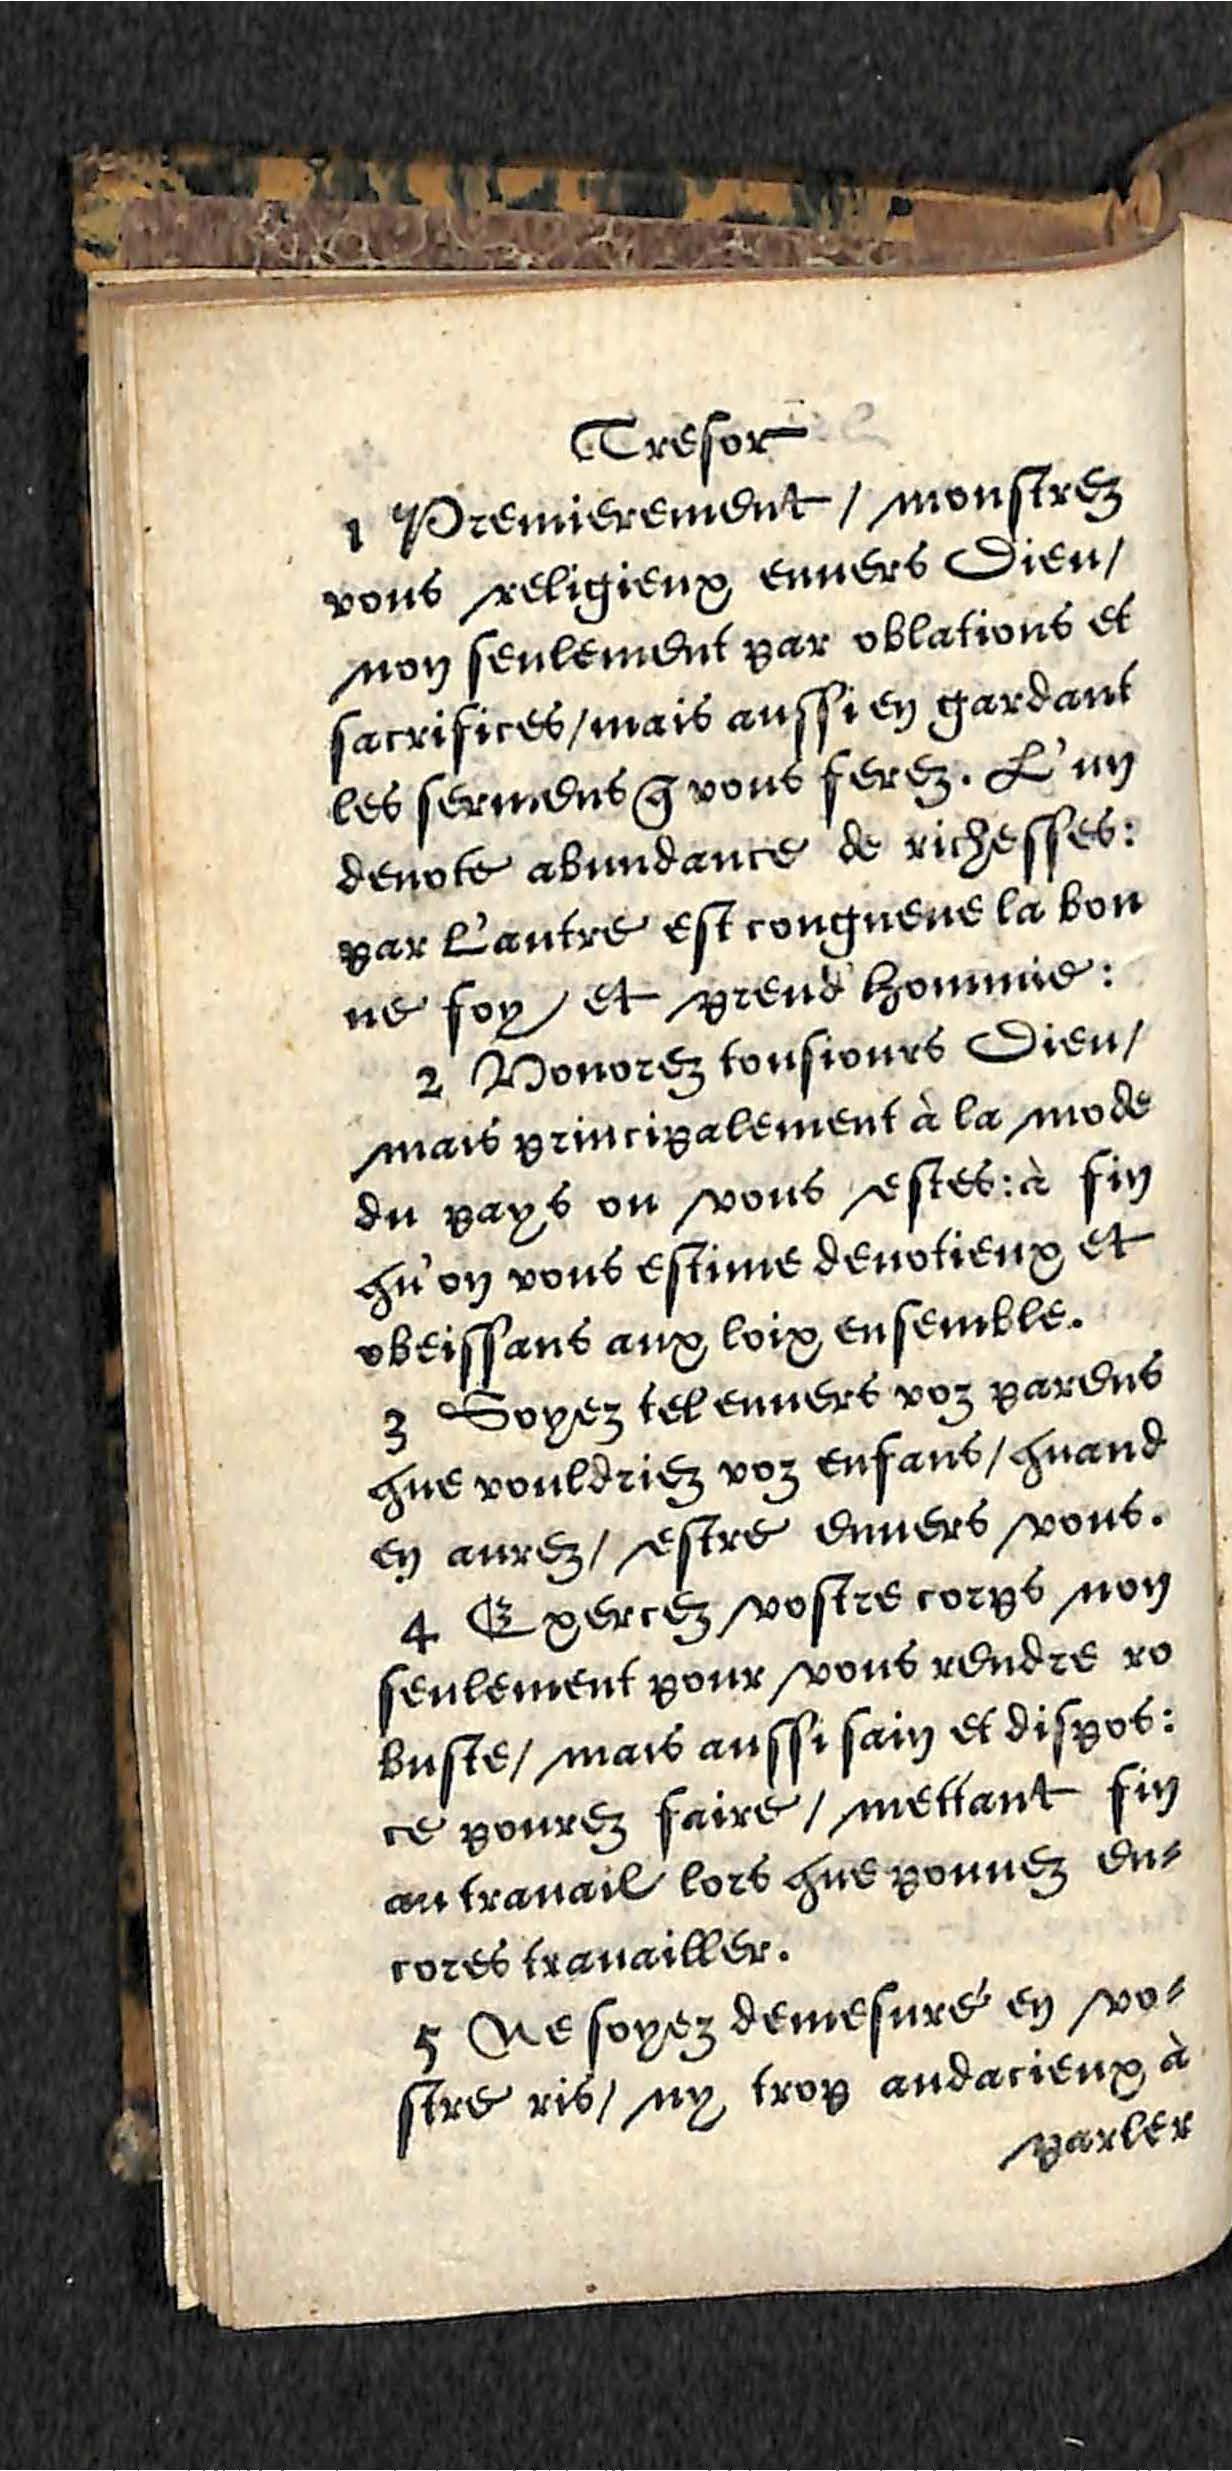 Tresor
1 Premierement / monstrez
vous religieux enuers Dieu /
non seulement par oblations et
sacrifices / mais aussi en gardant
les sermens q̃ vous ferez. L'un
denote abundance de richesses:
par L'autre est congneue la bon
ne foy / et preud hommie:
2 Honorez tousiours Dieu /
mais principalement à la mode
du pays ou vous estes: à fin
qu'on vous estime deuotieux et
obeissans aux loix ensemble.
3 Soyez tel enuers voz parens
que vouldriez voz enfans / quand
en aurez / estre enuers vous.
4 Exercez vostre corps non
seulement pour vous rendre ro
buste / mais aussi sain et dispos:
ce pourez faire / mettant fin
au trauail lors que pouuez en-
cores trauailler.
5 Ne soyez demesuré en vo-
stre ris / ny trop audacieux à
parler